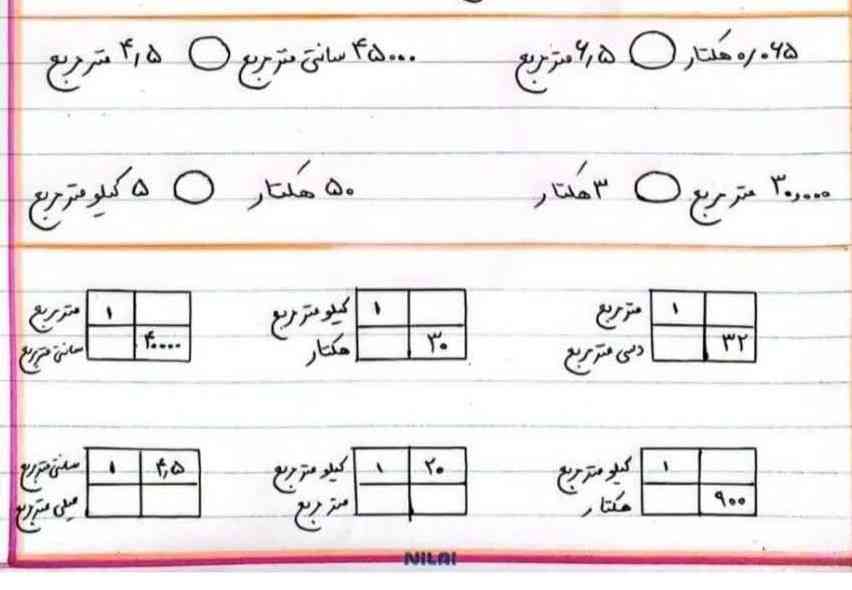 ۰/۰۶۵ هکتار ◯ ۶/۵ متر مربع
۴۵۰۰۰ سانتی متر مربع ◯ ۴/۵ متر مربع
۳۰,۰۰۰ متر مربع ◯ ۳ هکتار
۵۰ هکتار ◯ ۵ کیلومتر مربع
متر مربع ۱
دسی متر مربع ۳۲
کیلومتر مربع ۱
هکتار ۳۰
متر مربع ۱
سانتی متر مربع ۴۰۰۰۰
کیلومتر مربع ۱
هکتار ۹۰۰
کیلومتر مربع ۱ ۲۰
متر مربع
سانتی متر مربع ۱ ۴/۵
میلی متر مربع
NILAI